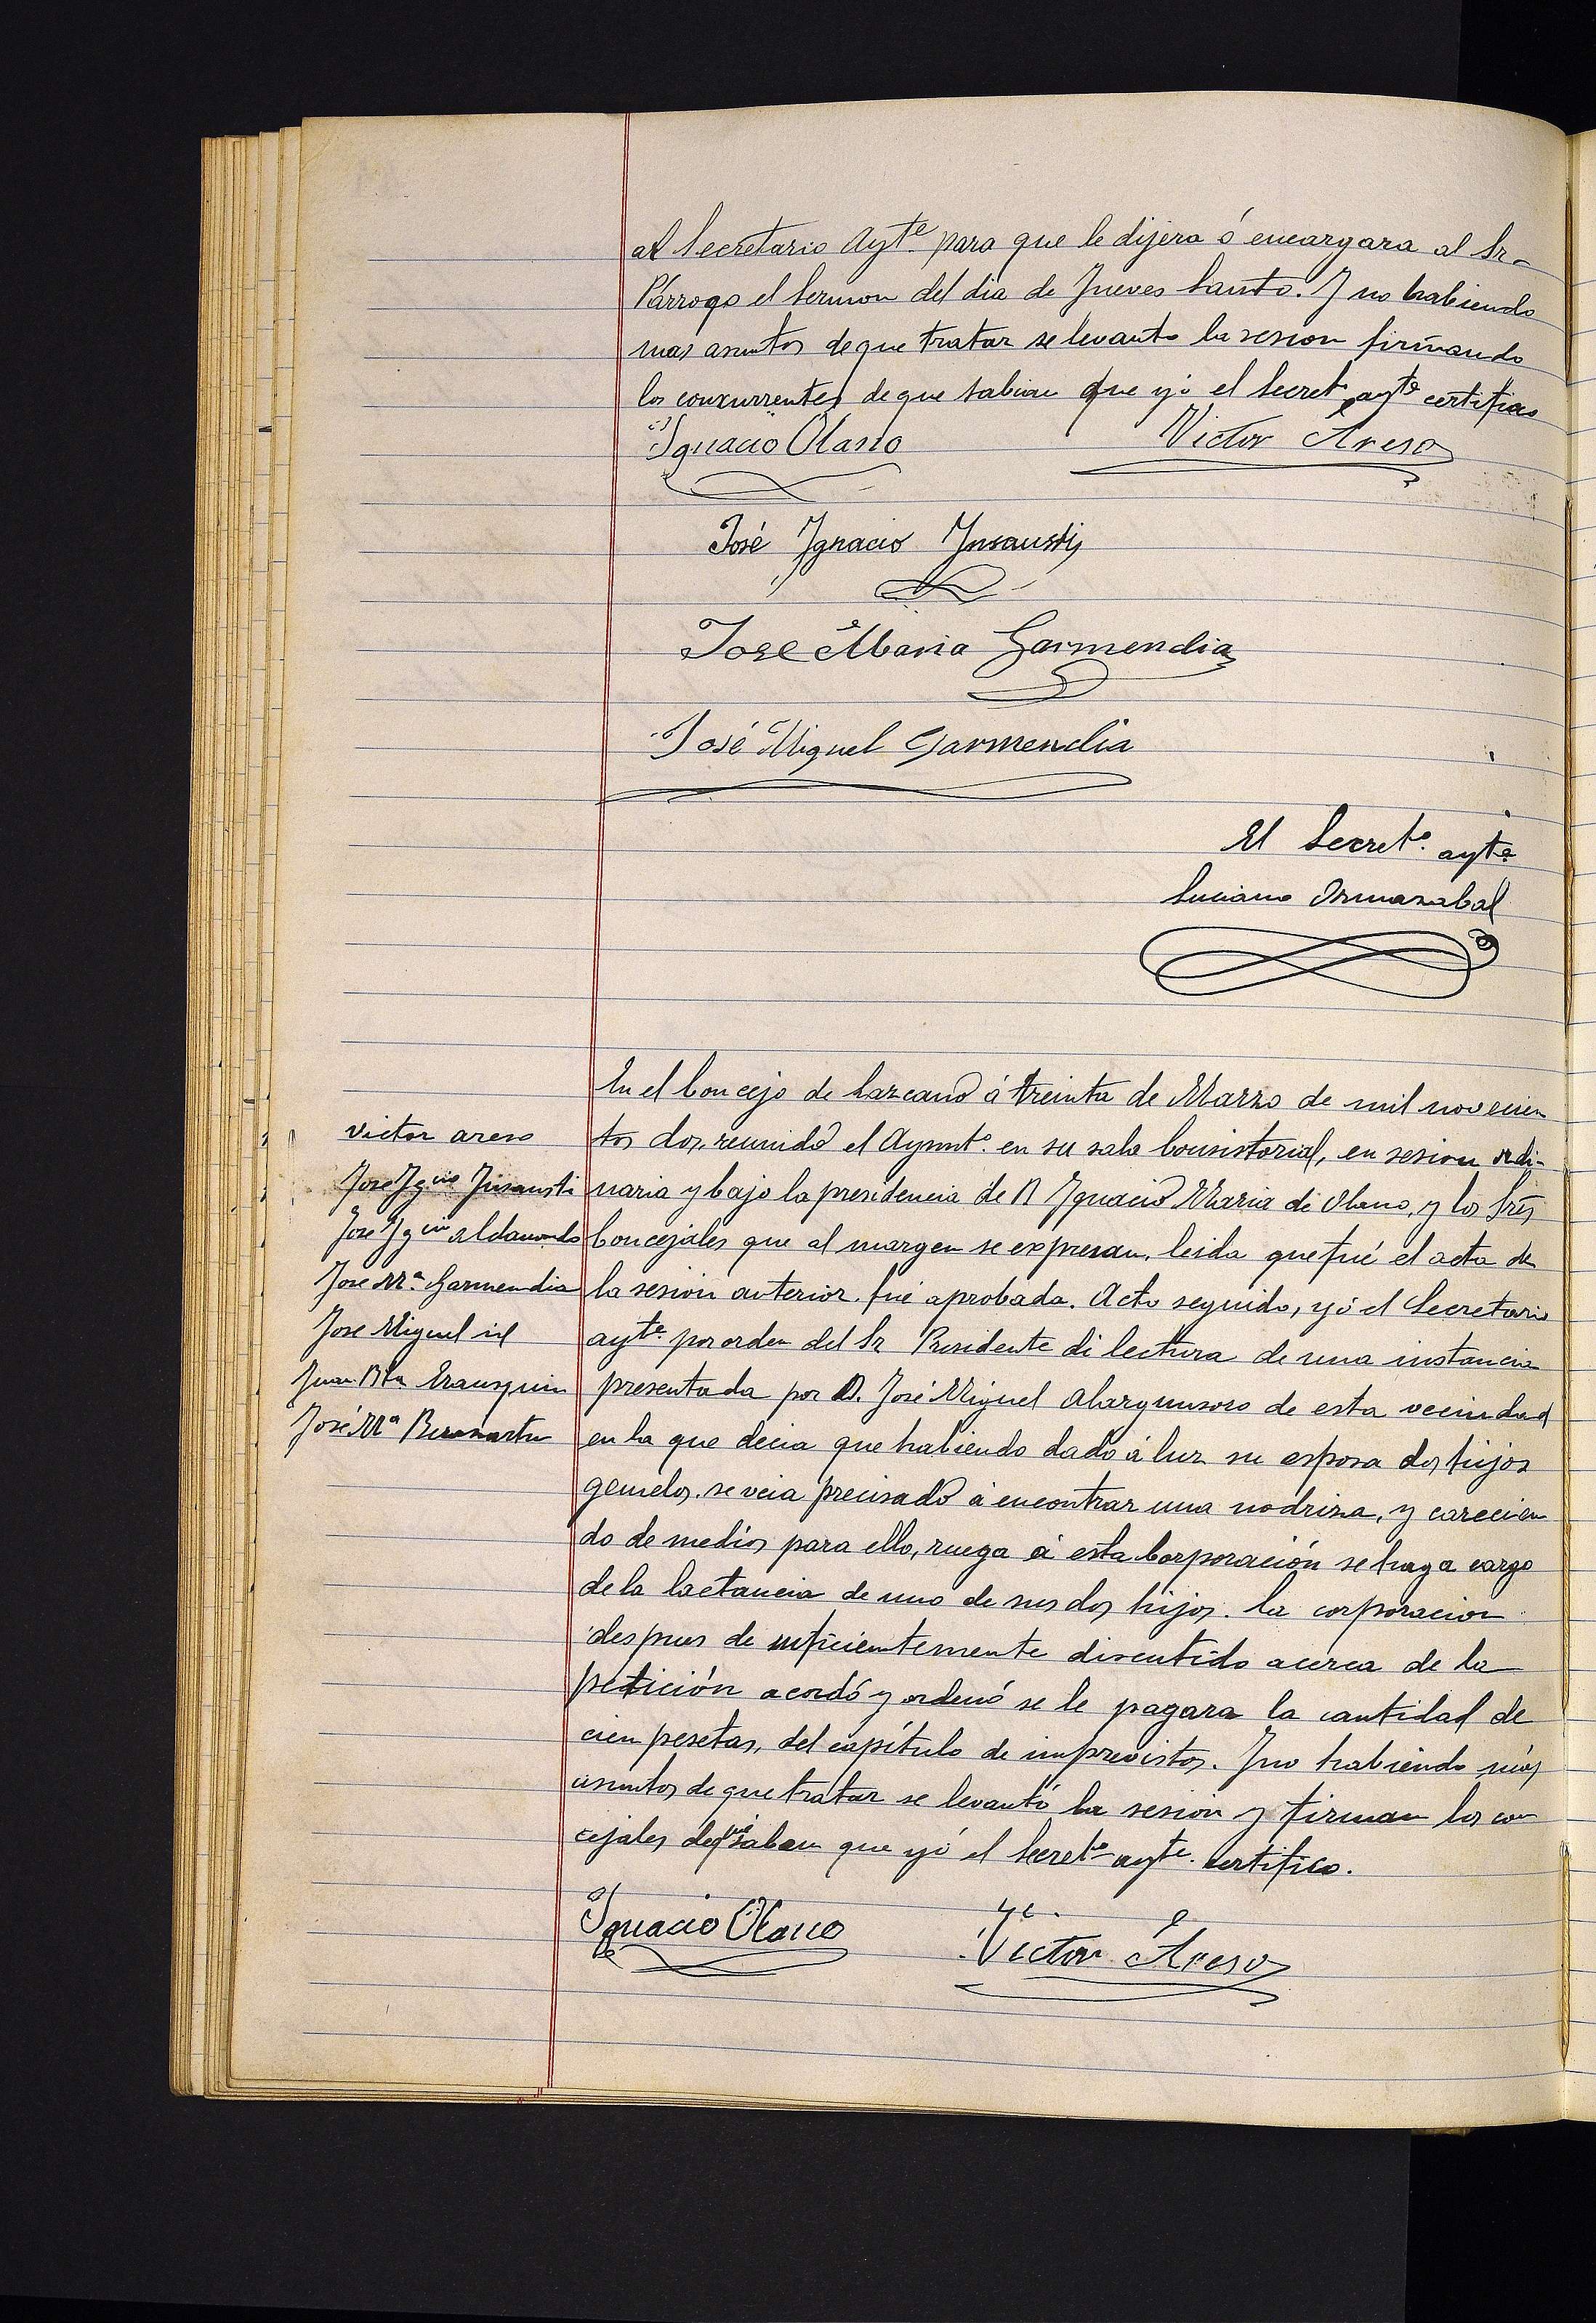 al Secretario Aytᵉ para que le dijera ó encargara al Sr.
Párroqo el Sermon del dia de Jueves Santo. Y no habiendo
mas asuntos de que tratar se levanto la sesion firmando
los concurrentes de que sabian que yó el Secretº aytᵉ certifico
Ignacio Olano
Victor Areso
José Ygnacio Ynsausti
Jose Maria Garmendia
José Miguel Garmendia
El Secretº. aytᵉ
Luciano Ormazabal
En el Concejo de Lazcano á treinta de Marzo de mil novecien
tos dos, reunido el Aymntº. en su sala Consistorial, en sesion ordi-
naria y bajo la presidencia de D Ygnacio Maria de Olano, y los Srs
Concejales que al margen se expresan, leida que fué el acta de
la sesion anterior. fué aprobada. Acto seguido, yó el Secretario
aytᵉ. por orden del Sr Presidente di lectura de una instancia
presentada por D. José Miguel de esta vecindad
en la que decia que habiendo dado á luz su esposa dos hijos
gemelos. se veia precisado á encontrar una nodriza, y carecien
do de medios para ello, ruega á esta Corporación se haga cargo
de la lactancia de uno de sus dos hijos. La corporacion
despues de suficientemente discutido acerca de la
petición acordó y ordenó se le pagara la cantidad de
cien pesetas, del capítulo de imprevistos. Y no habiendo más
asuntos de que tratar se levantó la sesion y firman los con
cejales de que saben que yó el Secretº aytᵉ. certifico.
victor areso
Jose Ygⁿⁱᵒ Insausti
Jose Ygⁿⁱᵒ aldasoro
Jose Mª. Garmendia
Jose Miguel id
Juan Bta Irausquin
José Mª Berasartu
Ignacio Olano
Victor Areso